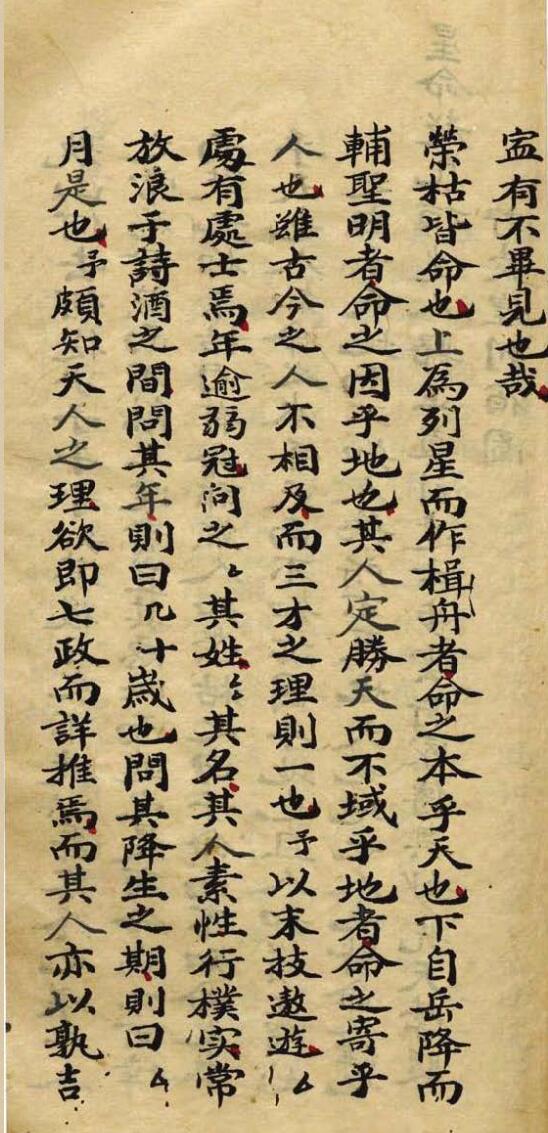 盍有不畢見也哉
榮枯皆命也上為列星而作楫舟者命之本乎天也下自岳降而
輔聖明者命之因乎地也其人定勝天而不域乎地者命之寄乎
人也雖古今之人不相及而三才之理則一也予以末技遨遊厶
處有處士焉年逾弱冠问之厶其姓厶其名其人素性行樸实常
放浪于詩酒之間問其年則曰几十歲也問其降生之期則曰厶
月是也予頗知天人之理欲即七政而詳推焉而其人亦以孰吉